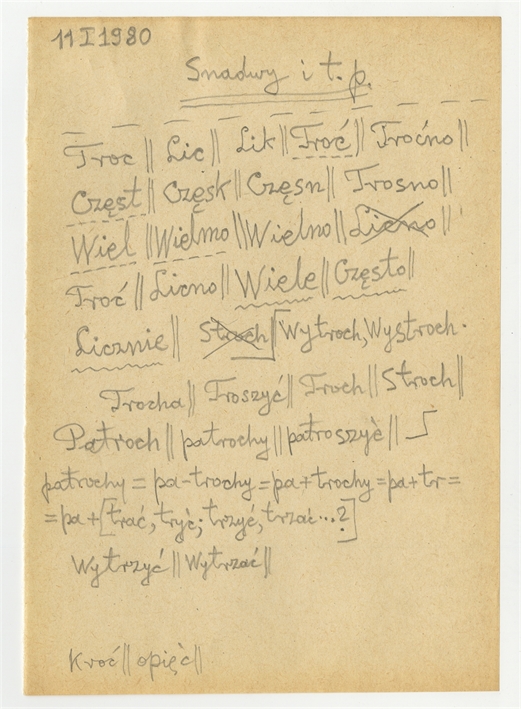 11 I 1980
Snadwy i t. p.
Troc || Lic || Lik || Troć || Troćno ||
Częst || Częsk || Częsn || Trosno ||
Wiel || Wielmo || Wielno || Licno ||
Troć || Licno || Wiele || Często ||
Licznie || Stroch || Wytroch, Wystroch.
Trocha || Troszyć || Troch || Stroch ||
Patroch || patrochy || patroszyć ||
patrochy = pa-trochy = pa + trochy = pa + tr =
= pa + [trać, tryć; trzyć, trzać...?]
Wytrzyć || Wytrzać ||
Kroć || opięć ||